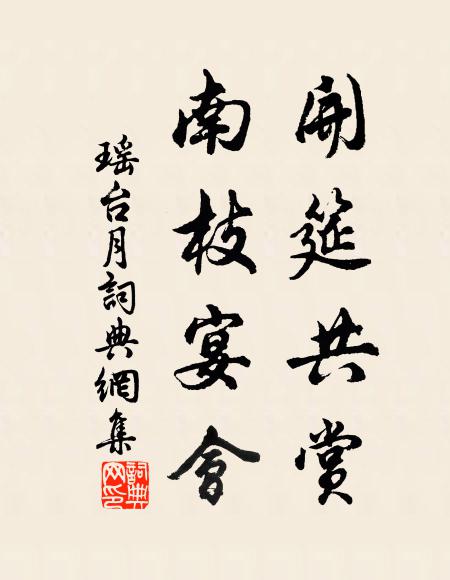 開筵共賞
南枝宴會
瑶台月詞典網集
詞典网印